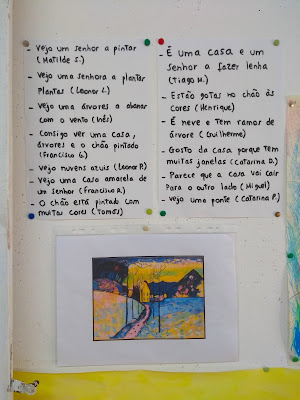 - Vejo um senhor a pintar
(Matilde S.)
- Vejo uma senhora a plantar
Plantas (Leonor L.)
- Vejo uma árvores a abanar
com o vento (Inês)
- Consigo ver uma casa,
árvores e o chão pintado
(Francisco G.)
- Vejo nuvens azuis (Leonor P.)
- Vejo uma casa amarela de
um senhor (Francisco R.)
- O chão está pintado com
muitas cores (Tomás)
- É uma casa e um
senhor a fazer lenha
(Tiago M.)
- Estão gotas no chão às
cores (Henrique)
- É neve e tem ramos de
árvore (Guilherme)
- Gosto da casa porque tem
muitas janelas (Catarina D.)
- Parece que a casa vai cair
Para o outro lado (Miguel)
- Vejo uma ponte (Catarina F.)